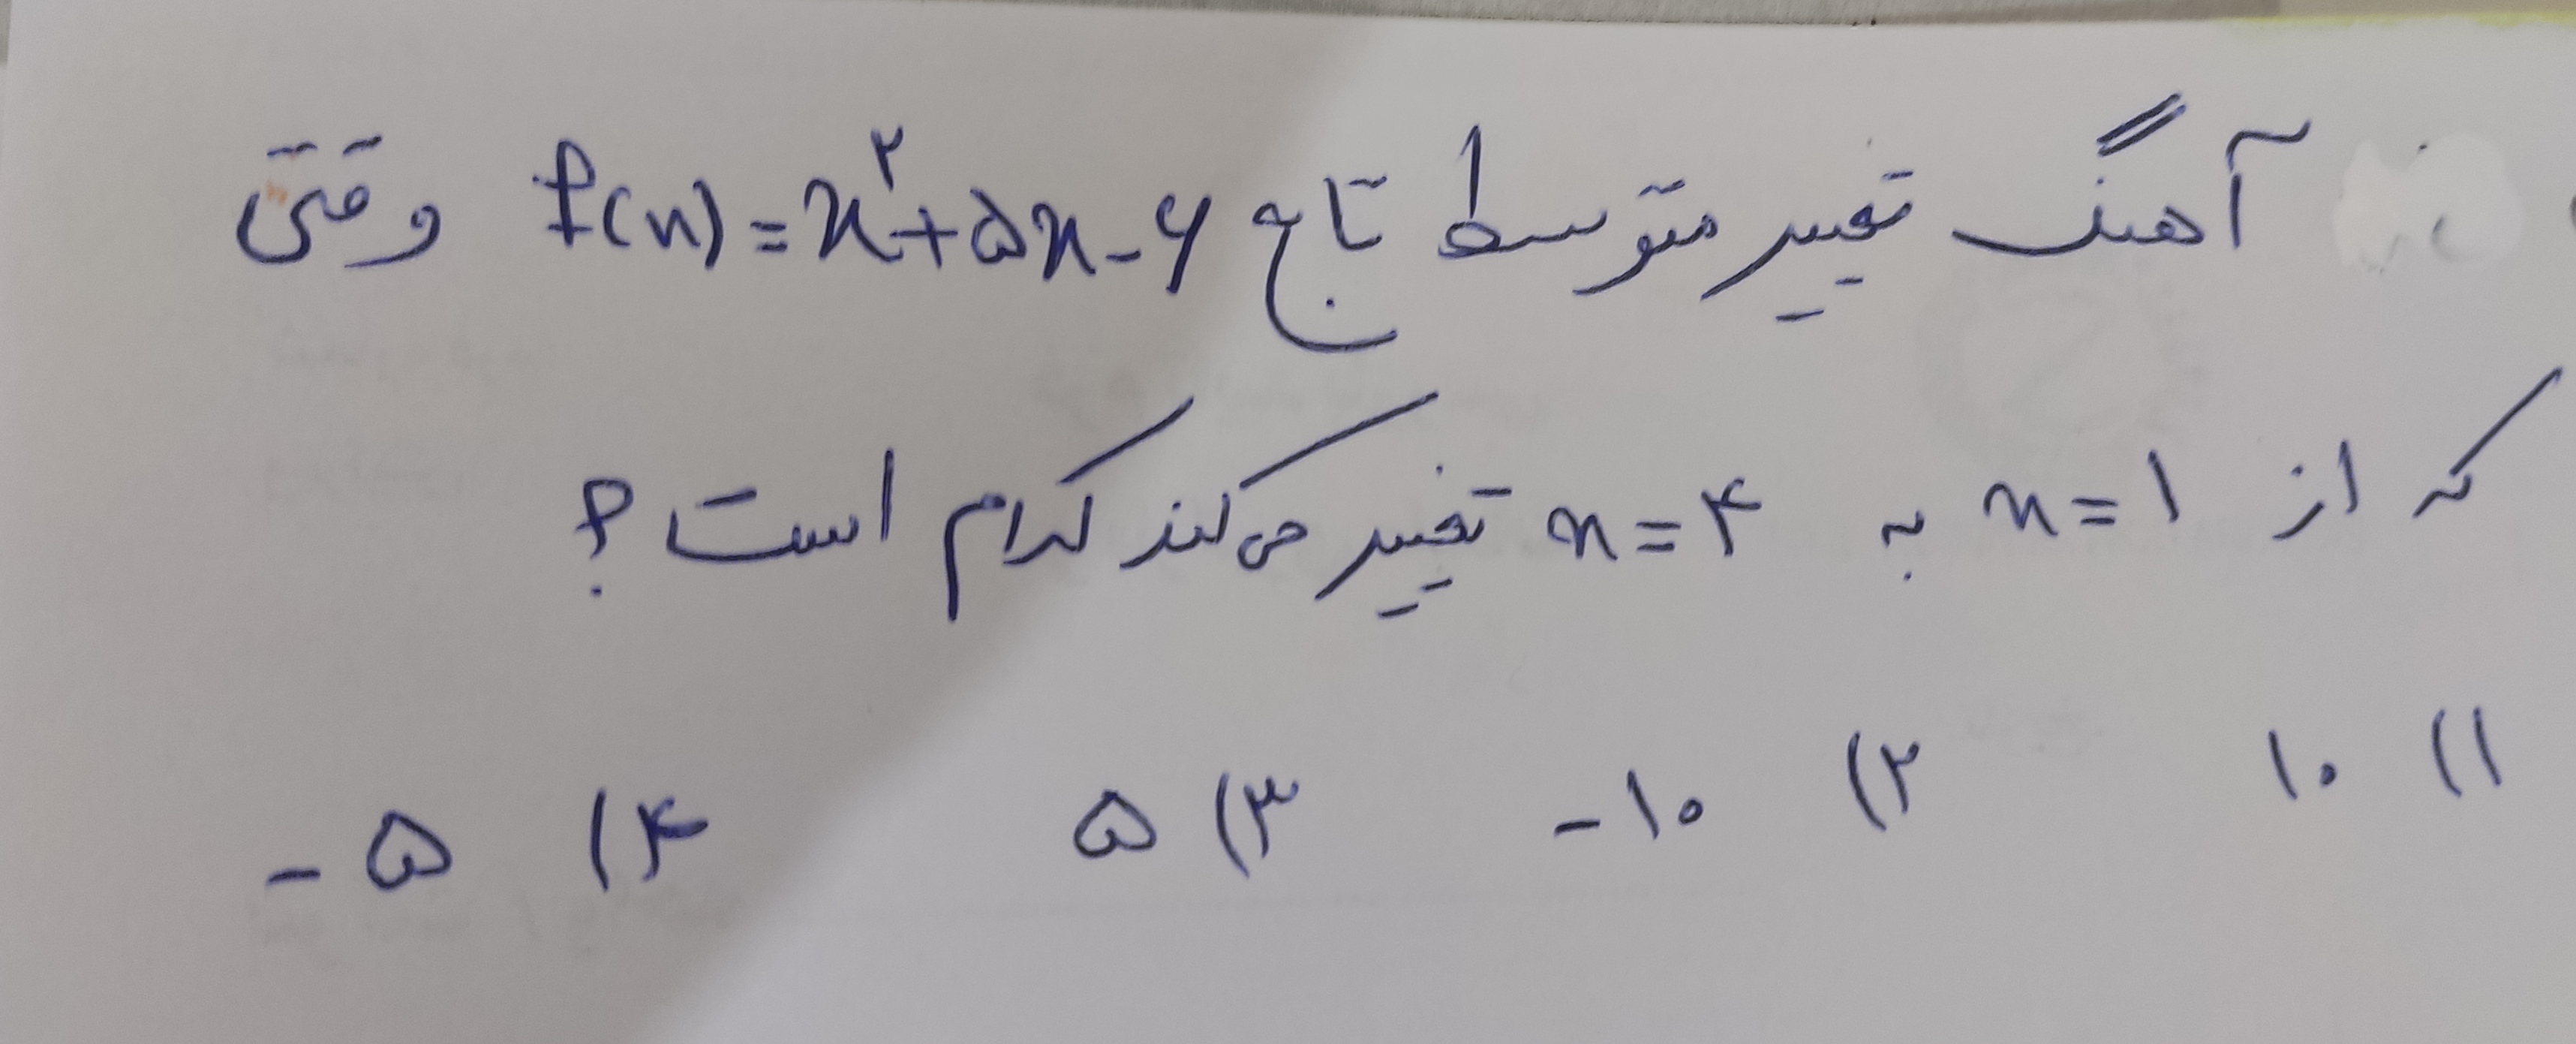 آهنگ تغییر متوسط تابع f(x)=x²+۵x-۶ وقتی
که از x=۱ به x=۴ تغییر می‌کند کدام است؟
۱) ۱۰ ۲) -۱۰ ۳) ۵ ۴) -۵